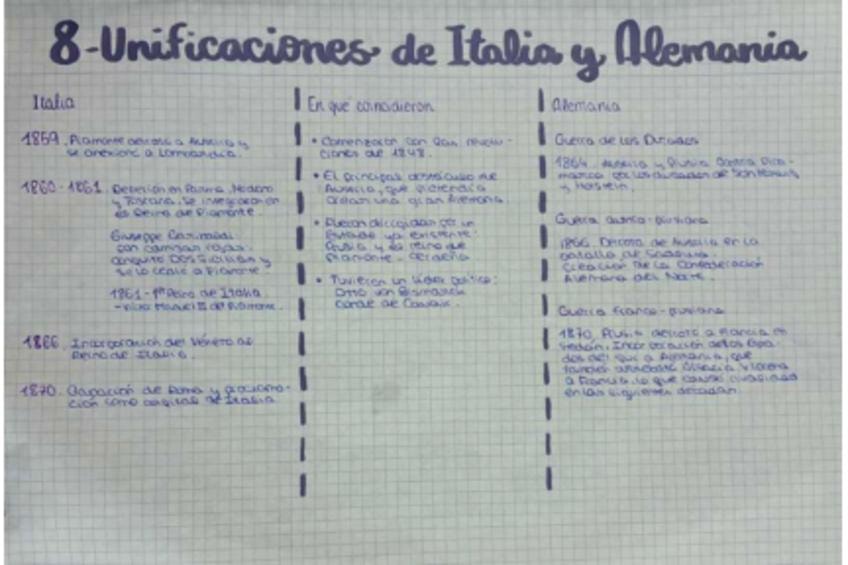 8-Unificaciones de Italia y Alemania
Italia
1859. Piamonte derrotó a Austria y
se anexionó a Lombardía.
1860-1861. Rebelión en Parma, Módena
y Toscana. Se integraron en
el Reino de Piamonte.
Giuseppe Garibaldi
con camisas rojas
conquistó Dos Sicilias y
se lo cedió a Piamonte.
1861-1º Reino de Italia
- Víctor Manuel II de Piamonte.
1866. Incorporación del Véneto al
Reino de Italia.
1870. Ocupación de Roma y proclama-
ción como capital de Italia
En qué coincidieron
• Comenzaron con las revolu-
ciones de 1848.
• El principal obstáculo fue
Austria, que pretendía
crear una gran Alemania.
• Fueron dirigidas por un
Estado ya existente:
Prusia y el reino de
Piamonte - Cerdeña
• Tuvieron un líder político:
Otto von Bismarck
Conde de Cavour.
Alemania
Guerra de los Ducados
1864. Austria y Prusia contra Dina-
marca por los ducados de Schleswig
y Holstein.
Guerra austro-prusiana
1866. Derrota de Austria en la
batalla de Sadowa.
Creación de la Confederación
Alemana del Norte.
Guerra franco-prusiana
1870. Prusia derrotó a Francia en
Sedán. Incorporación de los Esta-
dos del sur a Alemania, que
también arrebató Alsacia y Lorena
a Francia, lo que causó
en las siguientes décadas.